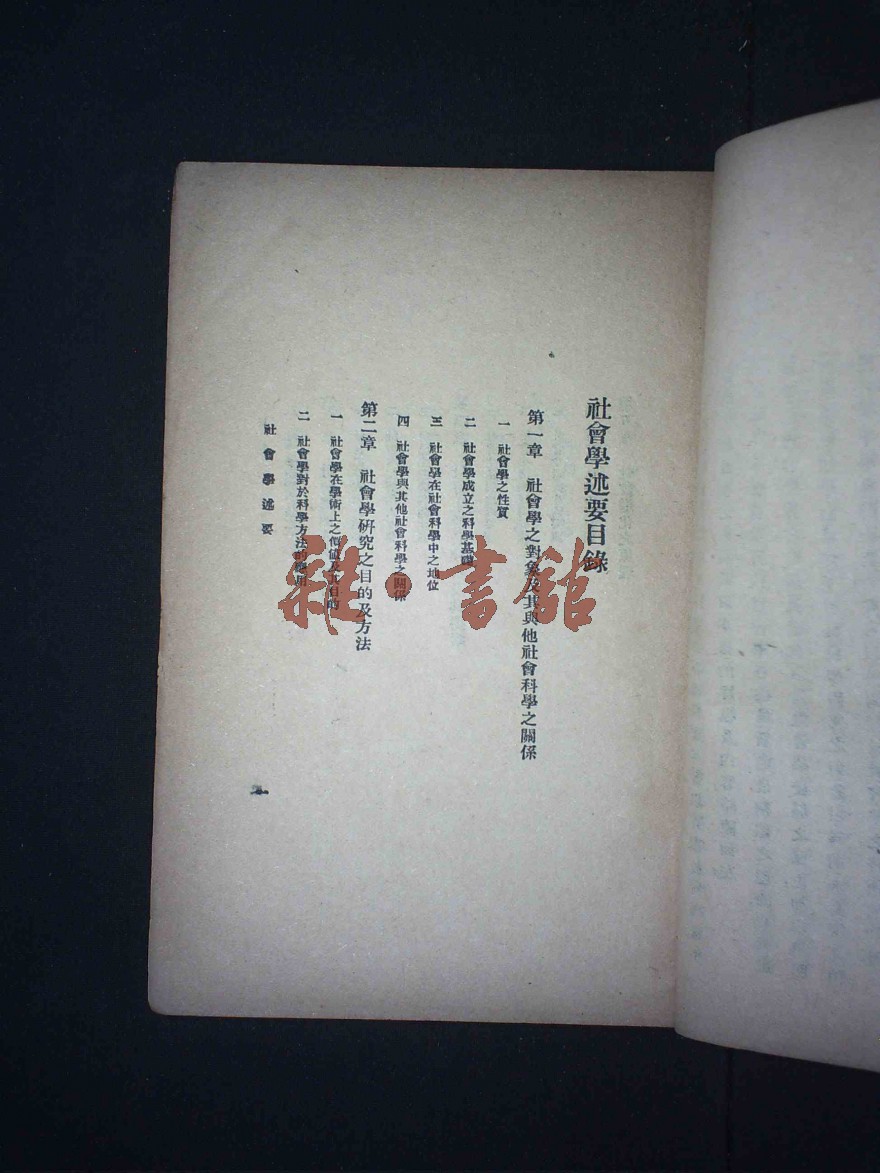 社會學述要目錄
第一章 社會學之對象及其與他社會科學之關係
一 社會學之性質
二 社會學成立之科學基礎
三 社會學在社會科學中之地位
四 社會學與其他社會科學之關係
第二章 社會學研究之目的及方法
一 社會學在學術上之價値及其目的
二 社會學對於科學方法的應用
社會學述要
雜·書館